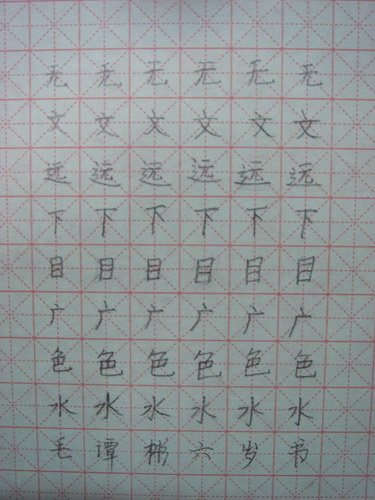 无无无无无无
文文文文文文
远远远远远远
下下下下下下
目目目目目目
广广广广广广
色色色色色色
水水水水水水
毛谭彬六岁书